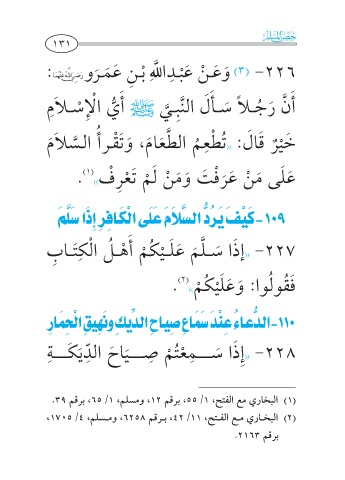 حصن المسلم
١٣١
٢٢٦- (٣) وَعَنْ عَبْدِاللَّهِ بْنِ عَمْرَو رضي الله عنهما:
أَنَّ رَجُلاً سَأَلَ النَّبِيَّ ﷺ أَيُّ الْإِسْلاَمِ
خَيْرٌ قَالَ: «تُطْعِمُ الطَّعَامَ، وَتَقْرأُ السَّلاَمَ
عَلَى مَنْ عَرَفْتَ وَمَنْ لَمْ تَعْرِفْ»(١).
١٠٩- كَيْفَ يَرُدُّ السَّلاَمَ عَلَى الْكَافِرِ إِذَا سَلَّمَ
٢٢٧- «إِذَا سَلَّمَ عَلَيْكُمْ أَهْلُ الْكِتَابِ
فَقُولُوا: وَعَلَيْكُمْ»(٢).
١١٠- الدُّعَاءُ عِنْدَ سَمَاعِ صِياحِ الدِّيكِ ونَهِيقِ الْحِمَارِ
٢٢٨- «إِذَا سَمِعْتُمْ صِيَاحَ الدِّيَكَةِ
(١) البخاري مع الفتح، ١/ ٥٥، برقم ١٢، ومسلم، ١/ ٦٥، برقم ٣٩.
(٢) البخاري مع الفتح، ١١/ ٤٢، برقم ٦٢٥٨، ومسلم، ٤/ ١٧٠٥،
برقم ٢١٦٣.